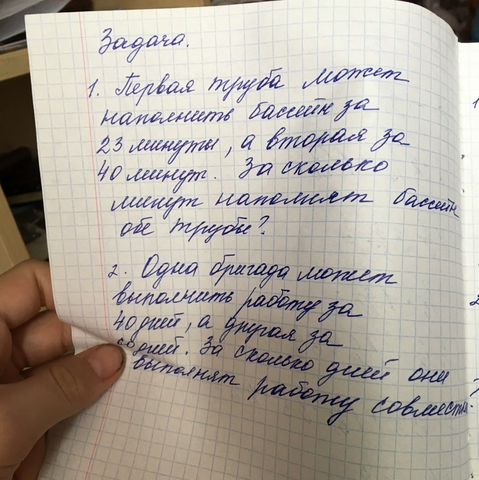 Задача.
1. Первая труба может
наполнить бассейн за
23 минуты, а вторая за
40 минут. За сколько
минут наполнят бассейн
обе трубы?
2. Одна бригада может
выполнить работу за
40 дней, а другая за
дней. За сколько дней они
выполнят работу совместн